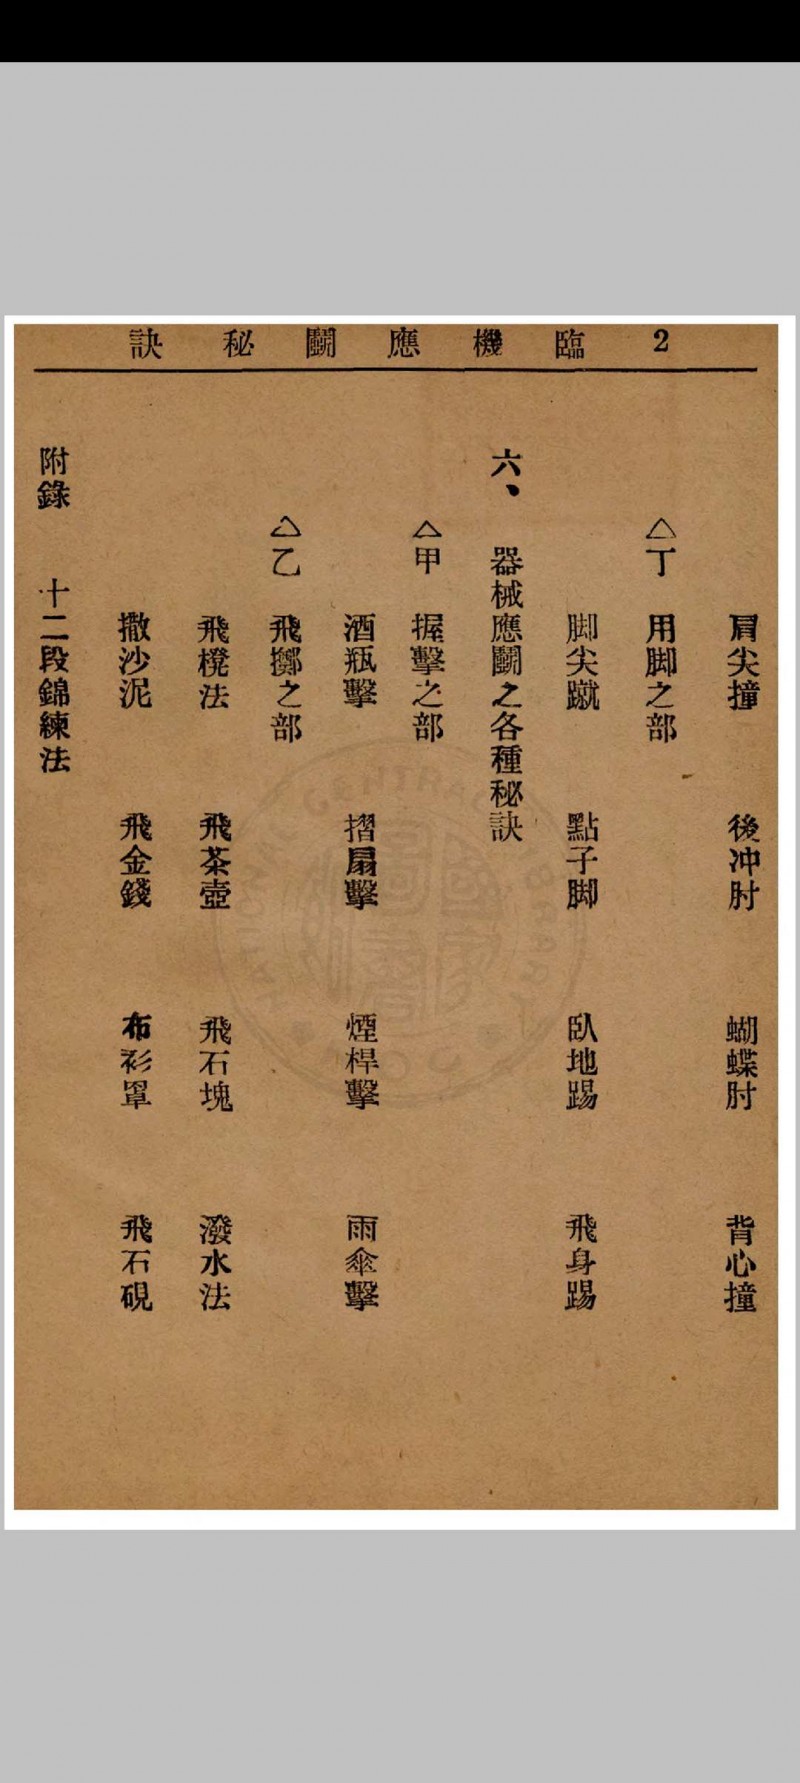 2 臨機應鬬秘訣
肩尖撞 後冲肘 蝴蝶肘 背心撞
△丁 用脚之部
脚尖蹴 點子脚 臥地踢 飛身踢
六、 器械應鬬之各種秘訣
△甲 握擊之部
酒瓶擊 摺扇擊 煙桿擊 雨傘擊
△乙 飛擲之部
飛櫈法 飛茶壺 飛石塊 潑水法
撒沙泥 飛金錢 布衫罩 飛石硯
附錄 十二段錦練法